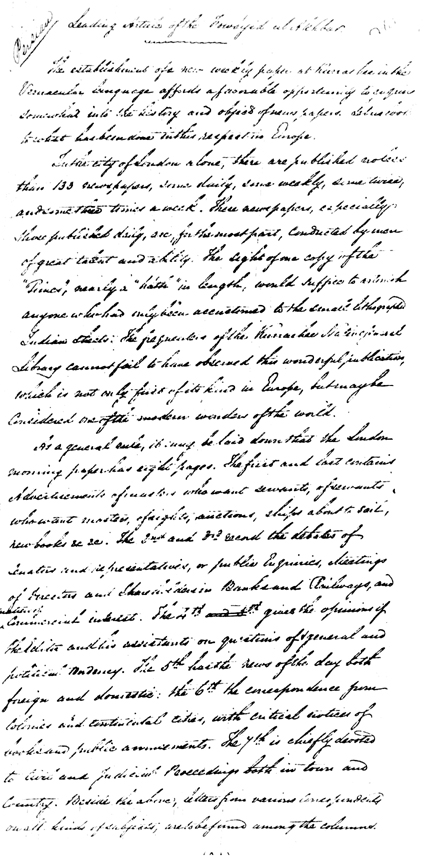 Persian
Leading Article of the Towdyid ul Akhbar.
The establishment of a new weekly paper at Kurrachee in the
Vernacular language affords a favourable opportunity to enquire
somewhat into the history and object of news papers. Let us look
to what has been done in this respect in Europe.
In the city of London alone, there are published no less
than 133 newspapers, some daily, some weekly, some twice,
and some three times a week. These newspapers, especially
those published daily, are, for the most part, conducted by men
of great talent and ability. The sight of one copy of the
"Times", nearly a "hath" in length, would suffice to astonish
anyone who had only been accustomed to the small lithographed
Indian sheets. The frequenters of the Kurrachee General
Library cannot fail to have observed this wonderful publication,
which is not only first of its kind in Europe, but may be
considered one of the modern wonders of the world.
As a general rule, it may be laid down that the London
morning paper has eight pages. The first and last contains
Advertisements of masters who want servants, of servants
who want masters, of sights, auctions, ships about to sail,
new books &c &c. The 2nd and 3rd record the debates of
Senators and representatives, or public Enquiries, Meetings
of Directors and Shareholders in Banks and Railways, and
matters of Commercial interest. The 4th and 5th gives the opinions of
the Editor and his assistants on questions of general and
political tendency. The 5th has the news of the day both
foreign and domestic: the 6th the correspondence from
Colonies and continental cities, with critical notices of
books and public amusements. The 7th is chiefly devoted
to Civil and Judicial Proceedings both in town and
Country. Beside the above, letters from various correspondents
on all kinds of subjects, are to be found among the columns.